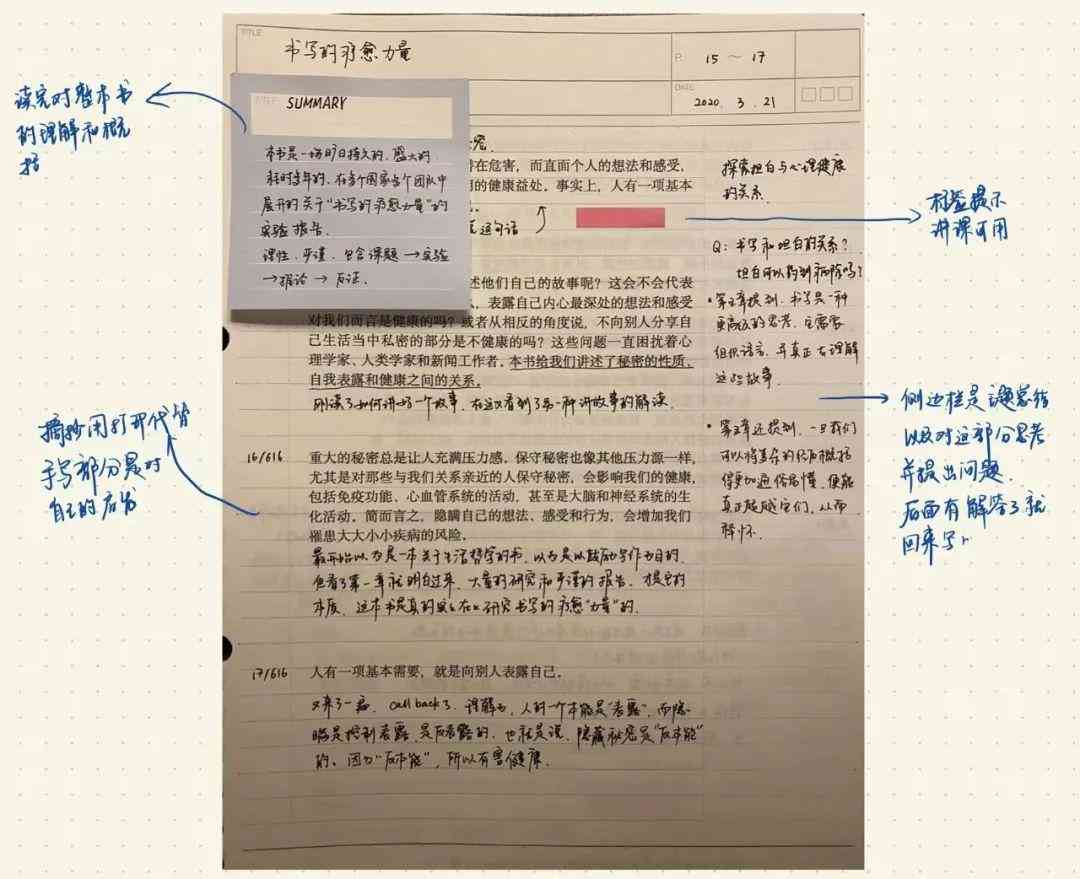 TITLE
书写的疗愈力量
P.
15 ~ 17
DATE
2020. 3. 21
读完对整本书
的理解和概
括
TITLE
SUMMARY
本书是一场旷日持久的、盛大的、
耗时多年的、在多个国家多个团队中
展开的关于“书写的疗愈力量”的
实验报告。
理性、严谨、包含课题→实验
→推论→反证.
存在危害，而直面个人的想法和感受，
的健康益处。事实上，人有一项基本
这句话
述他们自己的故事呢？这会不会代表
表露自己内心最深处的想法和感受
对我们而言是健康的吗？或者从相反的角度说，不向别人分享自
己生活当中私密的部分是不健康的吗？这些问题一直困扰着心
理学家、人类学家和新闻工作者。本书给我们讲述了秘密的性质、
自我表露和健康之间的关系。
刚读了如何讲好一个故事，在这又看到了另一种讲故事的解读。
16/616
重大的秘密总是让人充满压力感。保守秘密也像其他压力源一样，
尤其是对那些与我们关系亲近的人保守秘密，会影响我们的健康，
包括免疫功能、心血管系统的活动，甚至是大脑和神经系统的生
化活动。简而言之，隐瞒自己的想法、感受和行为，会增加我们
罹患大大小小疾病的风险。
最开始以为是一本关于生活哲学的书，以为是以鼓励写作为目的，
但看了第一章就明白过来，大量的研究和严谨的报告，才是它的
本质，这本书是真的在研究书写的疗愈“力量”的.
17/616
人有一项基本需要，就是向别人表露自己。
又来了一遍，call back了，理解为，人的一个本能是“表露”，而隐
瞒是控制表露，是反表露的，也就是说，隐藏秘密是“反本能”
的。因为“反本能”，所以有害健康.
探索坦白与心理健康
的关系.
Q: 书写和坦白的关系?
坦白可以起到祛除吗?
• 第三章提到，书写是一种
更高级的思考，它需要
组织语言，并真正去理解
这些故事.
• 第三章还提到，一旦我们
可以将复杂的经历概括
得更加通俗易懂，便能
真正超越它们，从而
释怀.
标签提示
讲课可用
侧边栏是议题总结
以及对这部分思考
并提出问题
后面有解答了就
回来写
摘抄用打印代替
手写部分是对
自己的启发